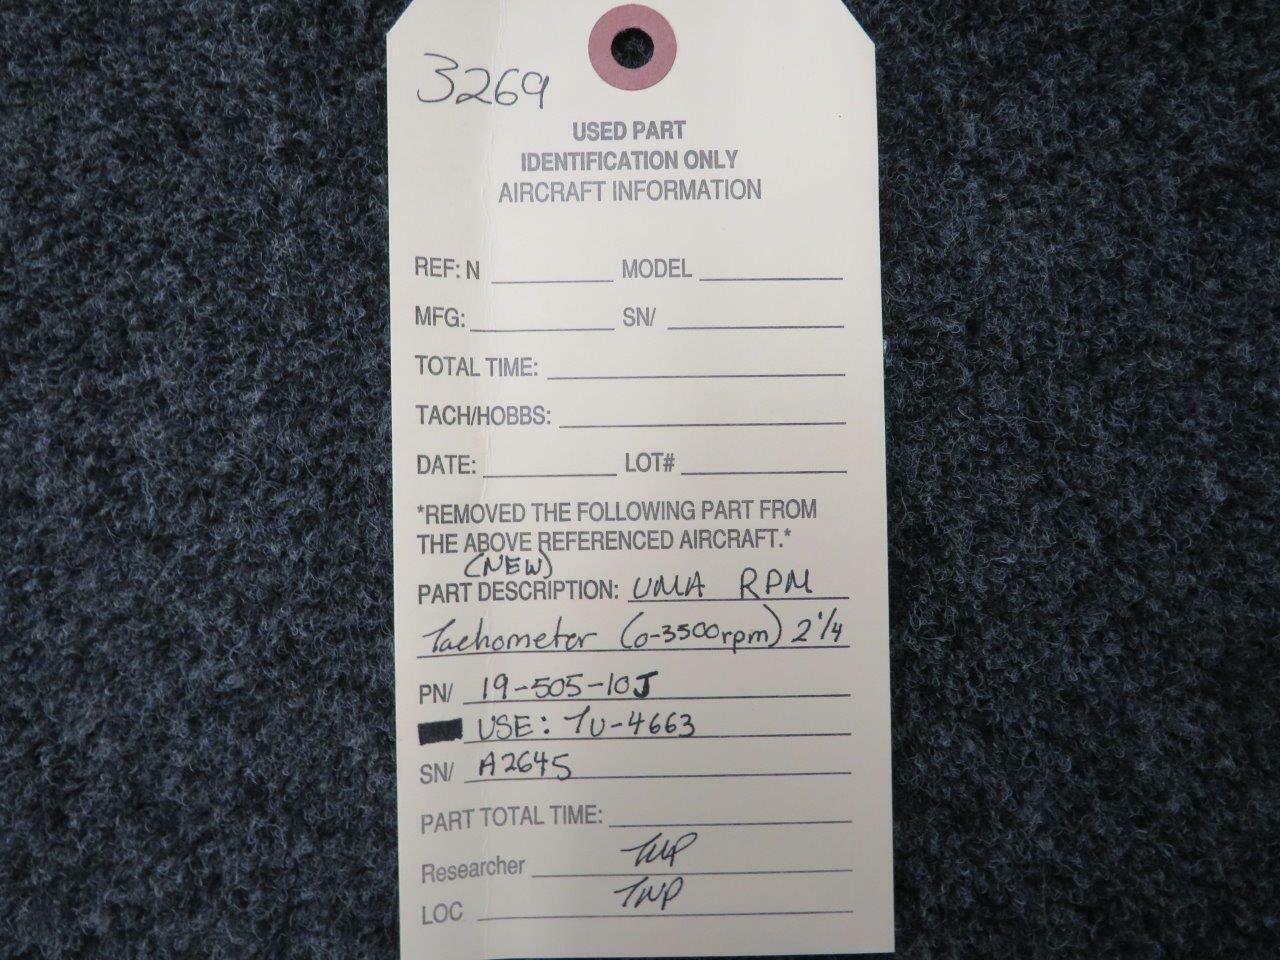 3269
USED PART
IDENTIFICATION ONLY
AIRCRAFT INFORMATION
REF: N MODEL
MFG: SN/
TOTAL TIME:
TACH/HOBBS:
DATE: LOT#
*REMOVED THE FOLLOWING PART FROM
THE ABOVE REFERENCED AIRCRAFT.*
(NEW)
PART DESCRIPTION: UMA RPM
Tachometer (0-3500rpm) 2 1/4
PN/ 19-505-10J
USE: TU-4663
SN/ A2645
PART TOTAL TIME:
Researcher
LOC